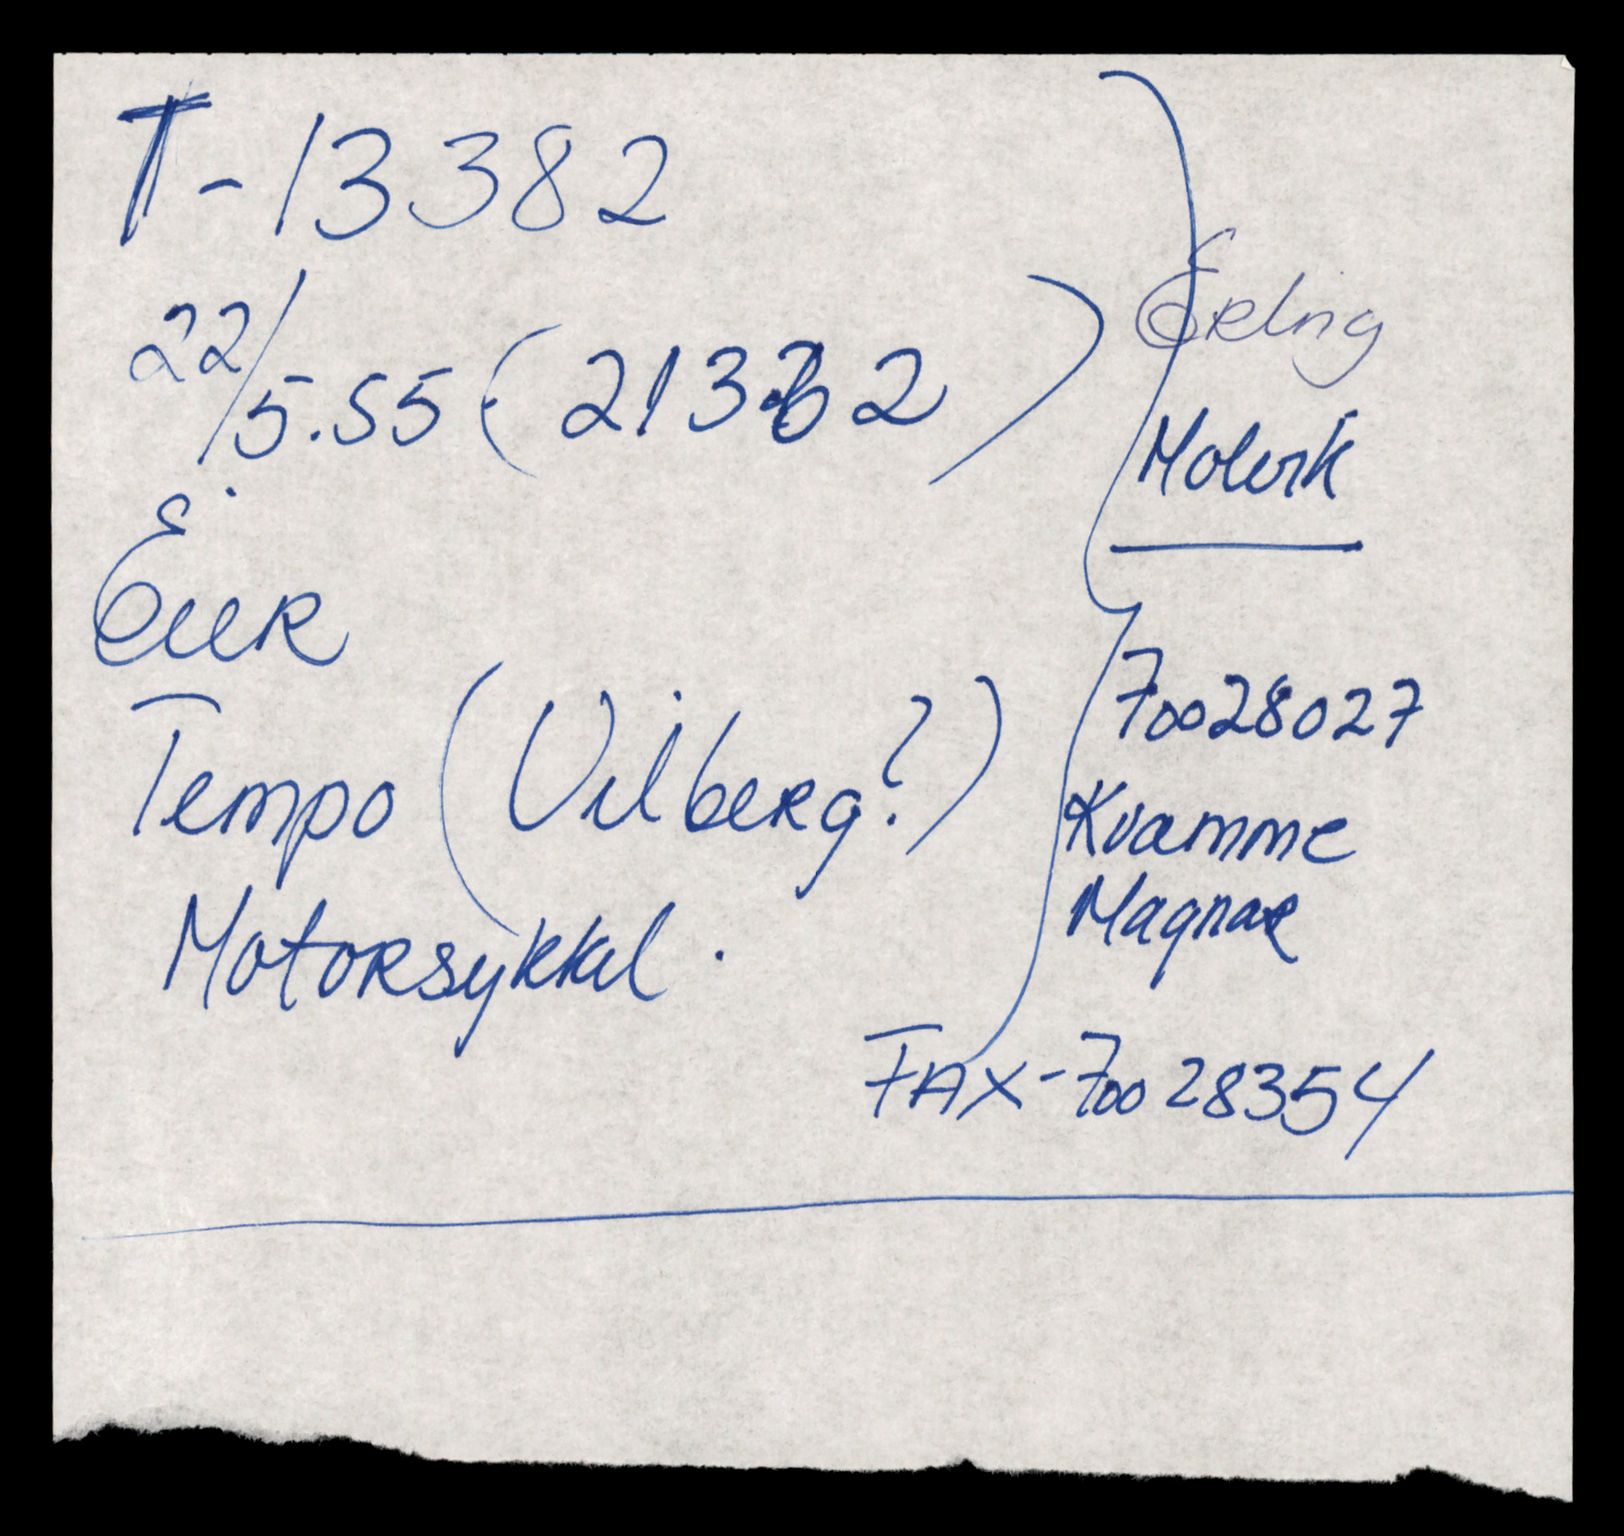 T-13382
22/5.55 (21362)
Eier
Tempo (Vilberg?)
Motorsykkel.
Erling
Molvik
70028027
Kvamme
Magnar
FAX-70028354